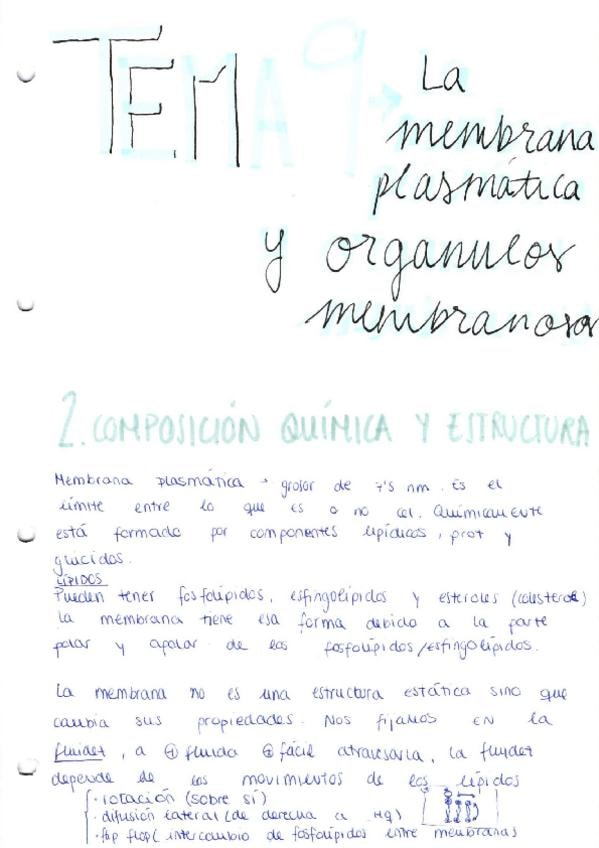 TEMA 9 → La
membrana
plasmática
y organulos
membranosos
2. COMPOSICIÓN QUÍMICA Y ESTRUCTURA
Membrana plasmática → grosor de 7'5 nm. Es el
límite entre lo que es o no cel. Químicamente
está formado por componentes lipídicos, prot y
glúcidos.
LÍPIDOS
Pueden tener fosfolípidos, esfingolípidos y esteroles (colesterol)
La membrana tiene esa forma debido a la parte
polar y apolar de los fosfolípidos/esfingolípidos.
La membrana no es una estructura estática sino que
cambia sus propiedades. Nos fijamos en la
fluidez, a ⊕ fluida ⊕ fácil atravesarla, la fluidez
depende de los movimientos de los lípidos
· rotación (sobre sí)
· difusión lateral (de derecha a izq)
· flip flop (intercambio de fosfolípidos entre membranas